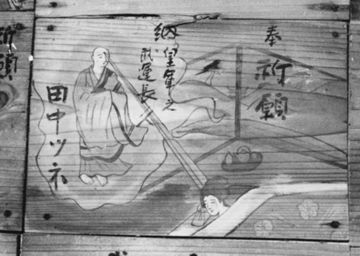 奉
祈願
納
皇軍之
武運長
田中ツネ
祈願